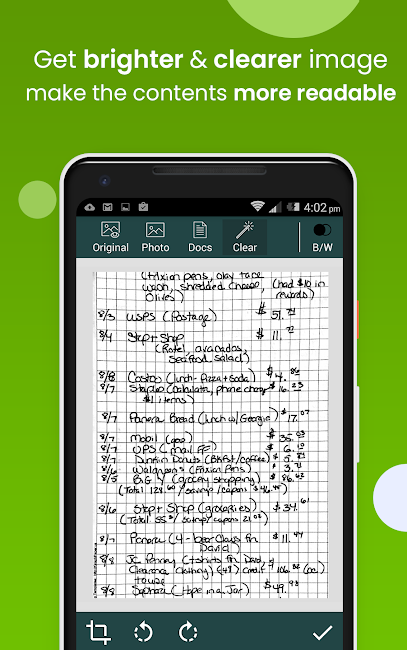 Get brighter & clearer image
make the contents more readable
4:02 pm
Original Photo Docs Clear B/W
(Frixion pens, olay face
wash, shredded cheese, (had $10 in
Olives) rewards)
8/3 USPS (Postage) $51.
8/4 Stop + Shop $11.
(Rotel, avacados,
Seafood Salad)
8/8 Costco (lunch - Pizza + Soda) $4.
8/7 Staples (Calculator, phone charger $16.23
$1 items)
8/7 Panera Bread (lunch w/ Georgie) $17.07
8/7 Mobil (gas) $35.
8/7 UPS (mail FF) $6.
8/7 Dunkin Donuts (Bkfst/coffee) $5.
8/6 Walgreens (Frixion Pens) $3.
8/5 Big Y (grocery shopping) $86.
(Total 128. / Savings/coupons $46.)
8/6 Stop + Shop (groceries) $34.61
(Total 55. / Savings/coupons 21.)
8/7 Panera (4 - bear claws for $11.44
David)
8/8 JC Penney (t-shirts for David, &
Clearance clothing) (48) credit $106. (cc)
8/8 Sephora (Hope in a Jar) $49.